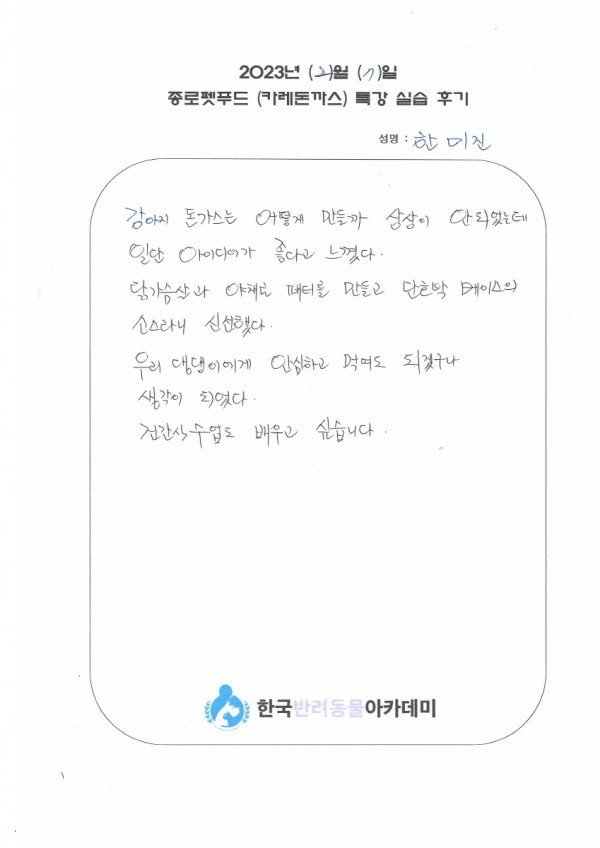 2023년 (2)월 (7)일
종로펫푸드 (카레돈까스) 특강 실습 후기
성명 : 한미진
강아지 돈가스는 어떻게 만들까 상상이 안되었는데
일단 아이디어가 좋다고 느꼈다.
닭가슴살과 야채로 패티를 만들고 단호박 베이스의
소스라니 신선했다.
우리 댕댕이에게 안심하고 먹여도 되겠구나
생각이 되었다.
건간식수업도 배우고 싶습니다.
한국반려동물아카데미